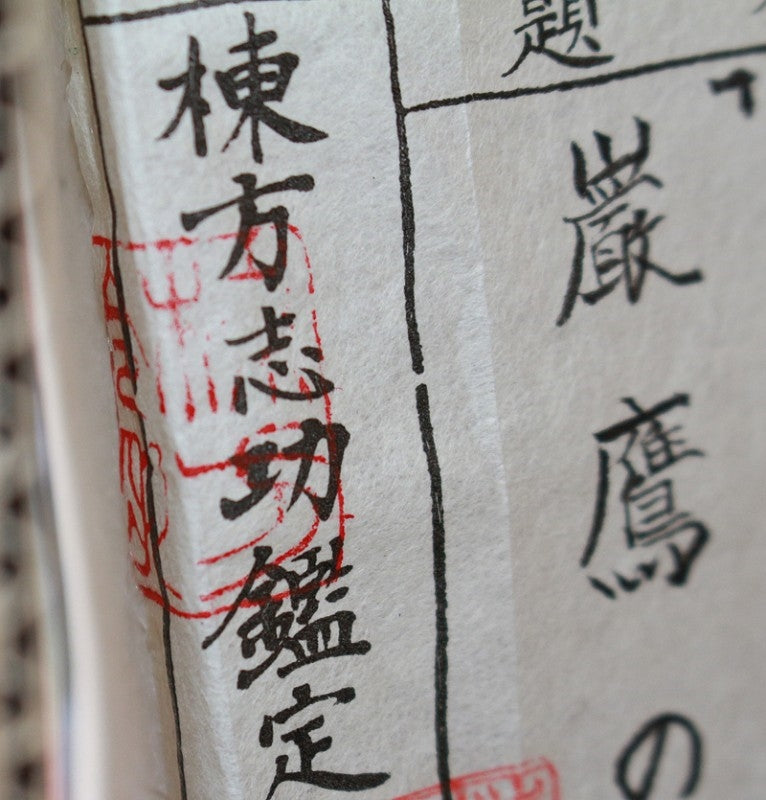 題
巌鷹の
棟方志功鑑定